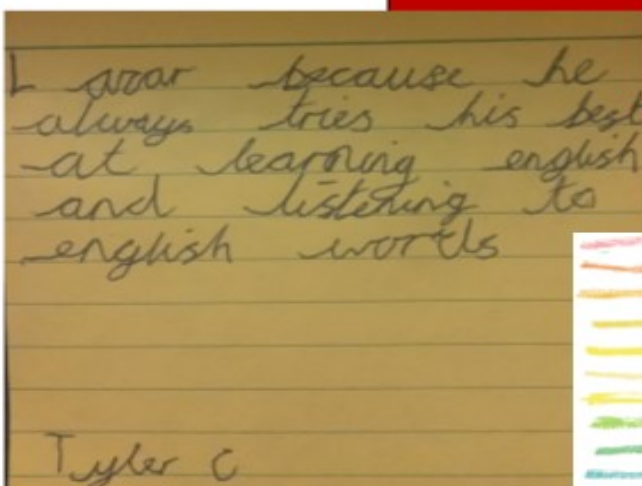 L azar because he
always tries his best
at learning english
and listening to
english words
Tyler C